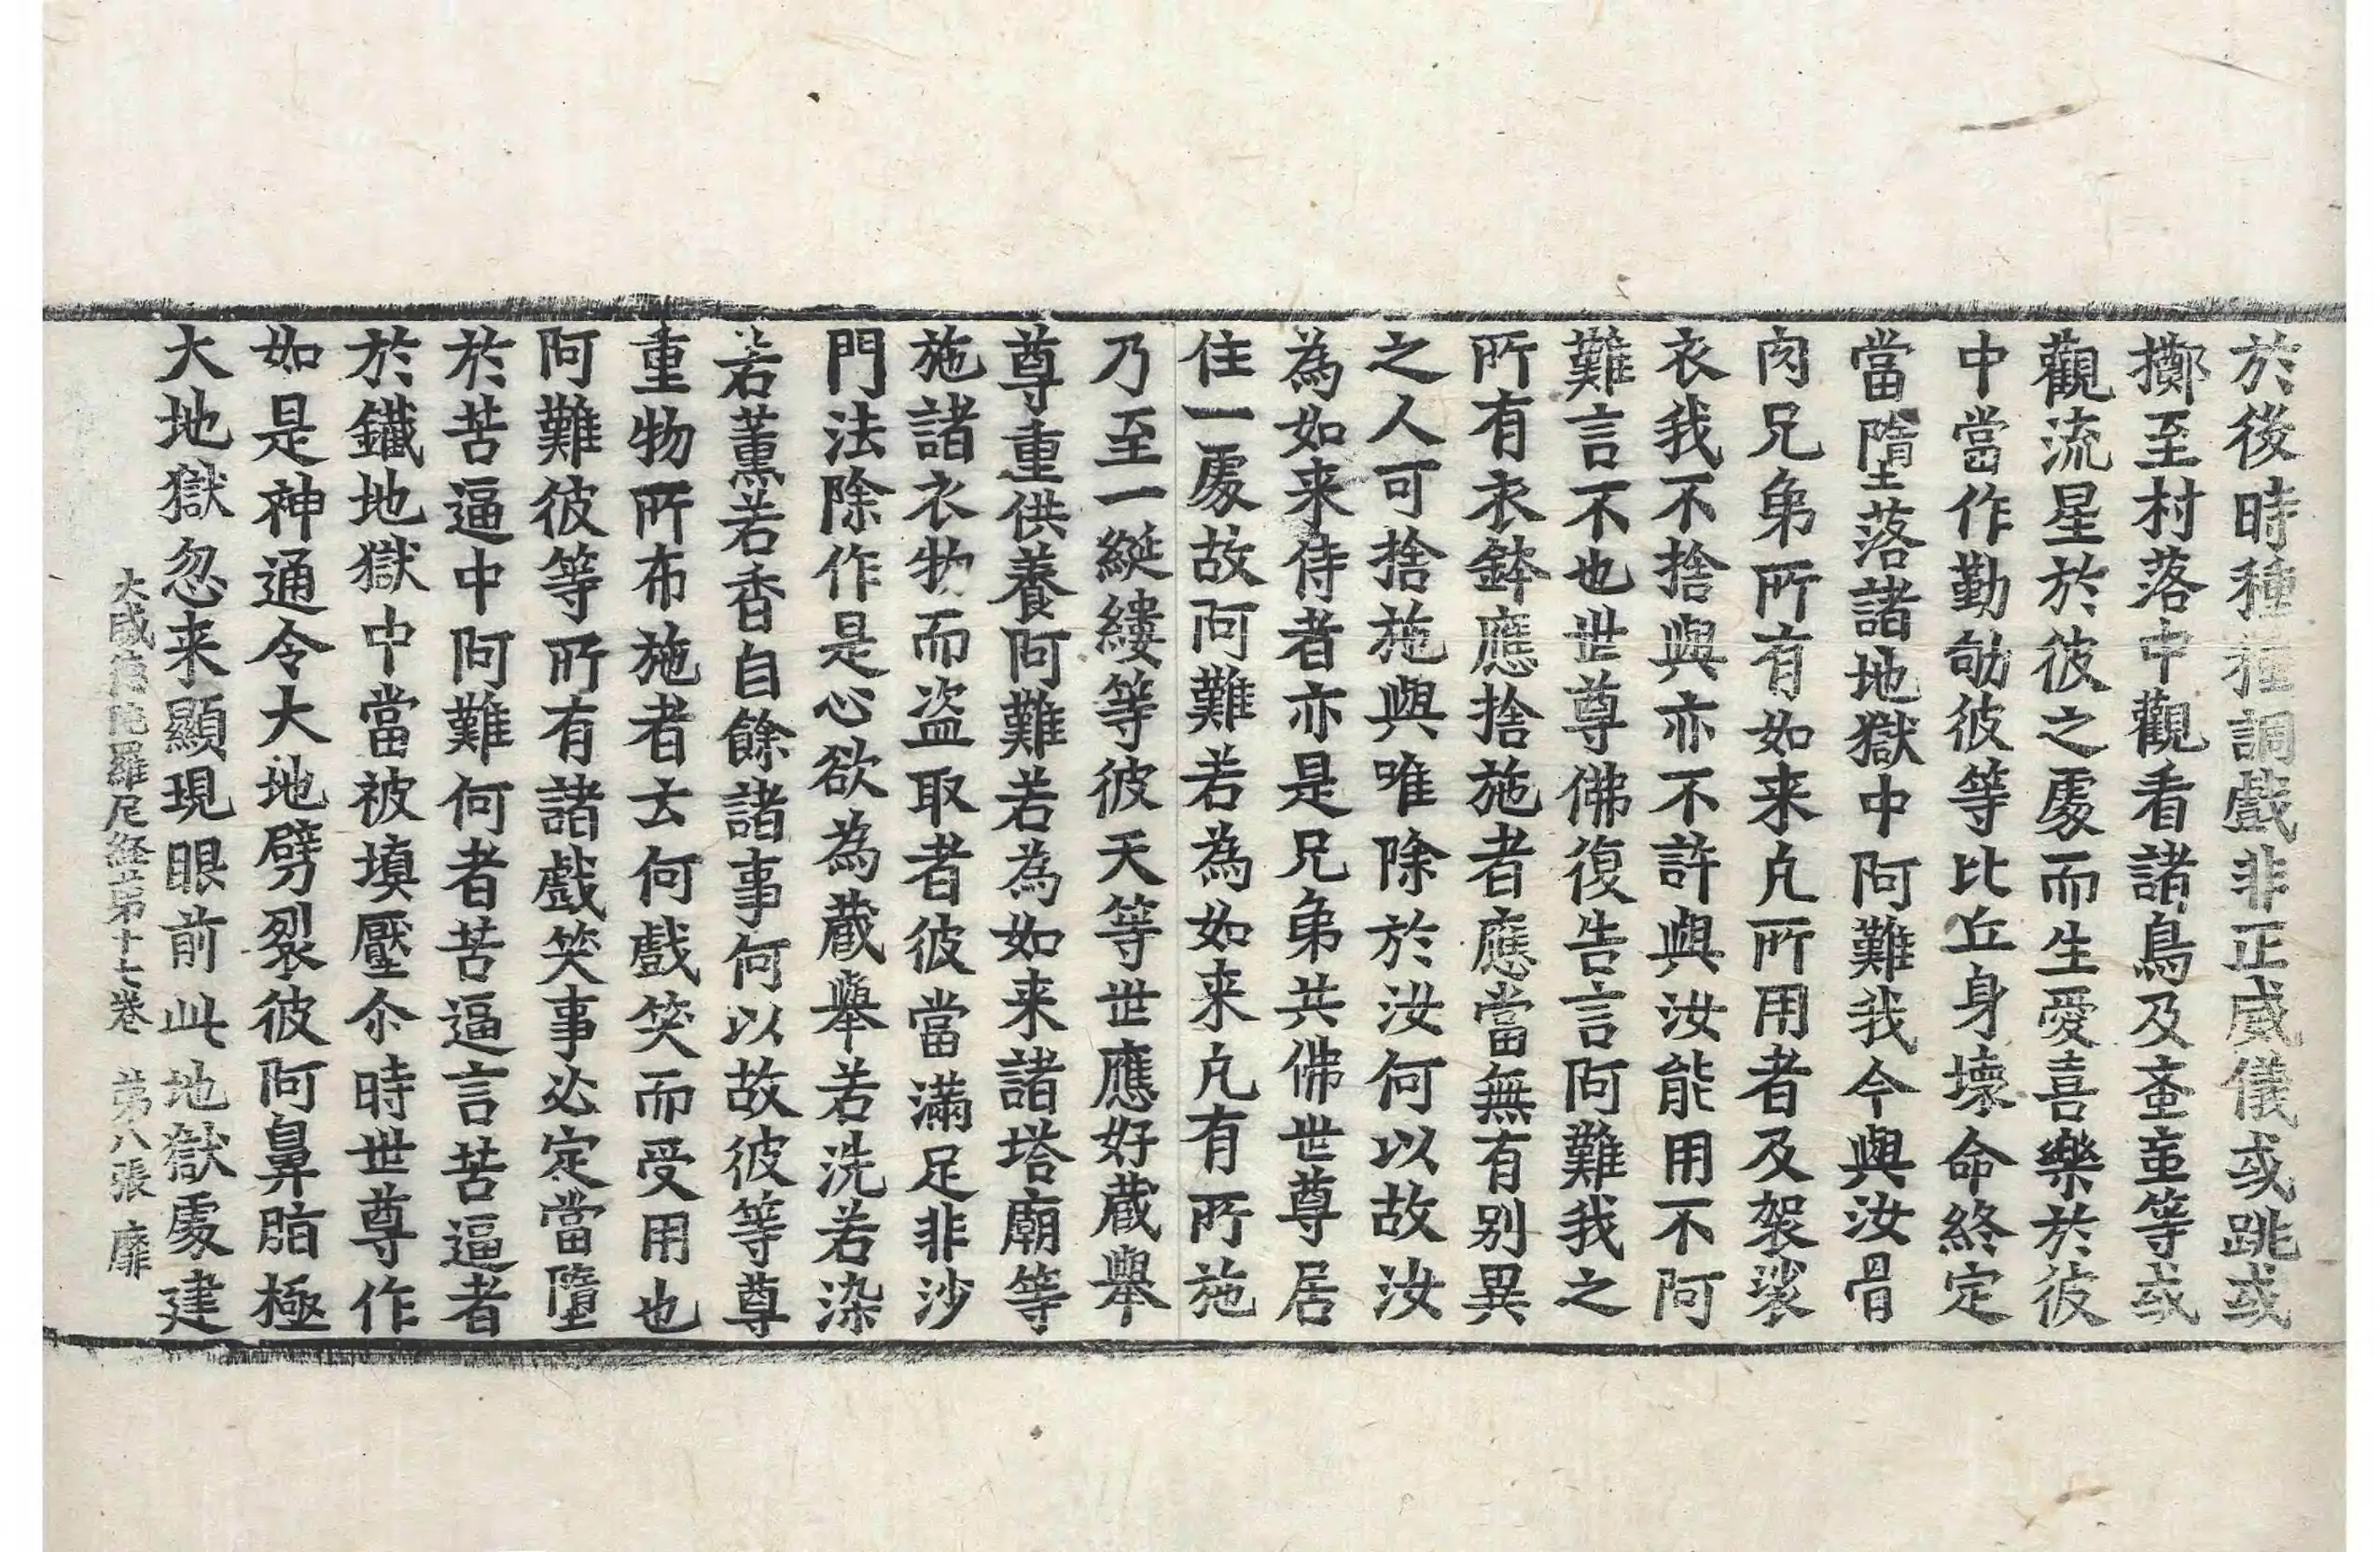 於後時種種調戲非正威儀或跳或
擲至村落中觀看諸鳥及畜童等或
觀流星於彼之處而生愛喜樂於彼
中當作勤劬彼等比丘身壞命終定
當墮落諸地獄中阿難我今與汝骨
肉兄弟所有如来凡所用者及袈裟
衣我不捨與亦不許與汝能用不阿
難言不也世尊佛復告言阿難我之
所有衣鉢應捨施者應當無有别異
之人可捨施與唯除於汝何以故汝
為如来侍者亦是兄弟共佛世尊居
住一處故阿難若為如来凡有所施
乃至一綖縷等彼天等世應好蔵舉
尊重供養阿難若為如来諸塔廟等
施諸衣物而盗取者彼當滿足非沙
門法除作是心欲為蔵舉若洗若染
若薰若香自餘諸事何以故彼等尊
重物所布施者去何戲笑而受用也
阿難彼等所有諸戲笑事必定當墮
於苦逼中阿難何者苦逼言苦逼者
於鐵地獄中當被填壓尒時世尊作
如是神通令大地劈裂彼阿鼻脂極
大地獄忽来顯現眼前此地獄處建
大威德陁羅尼経苐十七卷 苐八張 靡